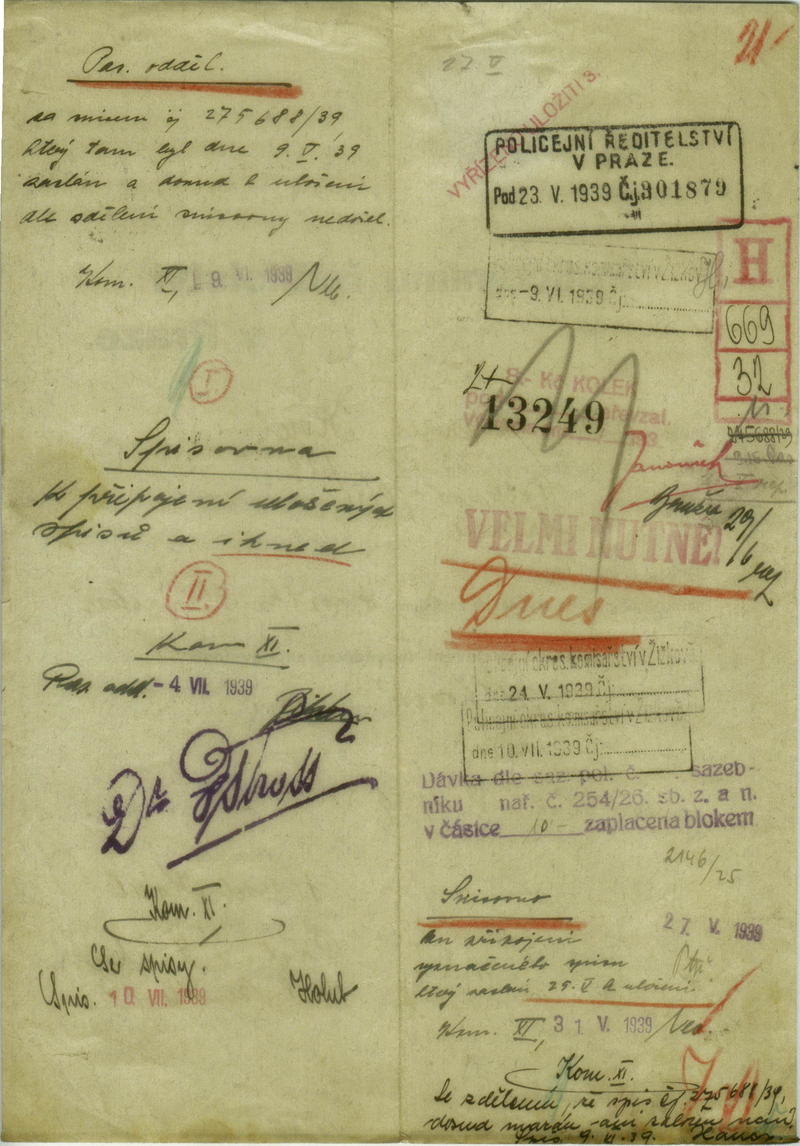 Pas. odděl.
čj 275688/39
který tam byl dne 9. V. 39
zaslán a dosud k uložení
ale sdělení spisovny nedošel.
Kom. XI, 19. VI. 1939
I
Spisovna
K připojení uložených
spisů a ihned
II
Kom XI.
Pas. odd. - 4 VII. 1939
Dr
Kom. XI.
Se spisy.
Spis. 10. VII. 1939 Holub
27 V
21
ULOŽITI 3.
POLICEJNÍ ŘEDITELSTVÍ
V PRAZE.
Pod 23. V. 1939 Čj. 301879
okres. komisařství v Žižkově
dne -9. VI. 1939 Čj.
H
669
32
8.- Kč KOLEK
13249
275688/39
29/
VELMI NUTNÉ!
Dnes
okres. komisařství v Žižkově
dne 24. V. 1939 Čj.
Policejní okres. komisařství v Žižkově
dne 10. VII. 1939 Čj.
Dávka dle saz. pol. č. sazeb-
níku nař. č. 254/26. sb. z. a n.
v částce 10- zaplacena blokem
2146/25
Spisovno
27 V. 1939
ku připojení
vyznačeného spisu
který zaslán 25. V k uložení.
Kom. XI, 31 V. 1939
Kom. XI.
Se sdělením, že spis čj. 275688/39,
dosud
Spis. 9. VI. 39.